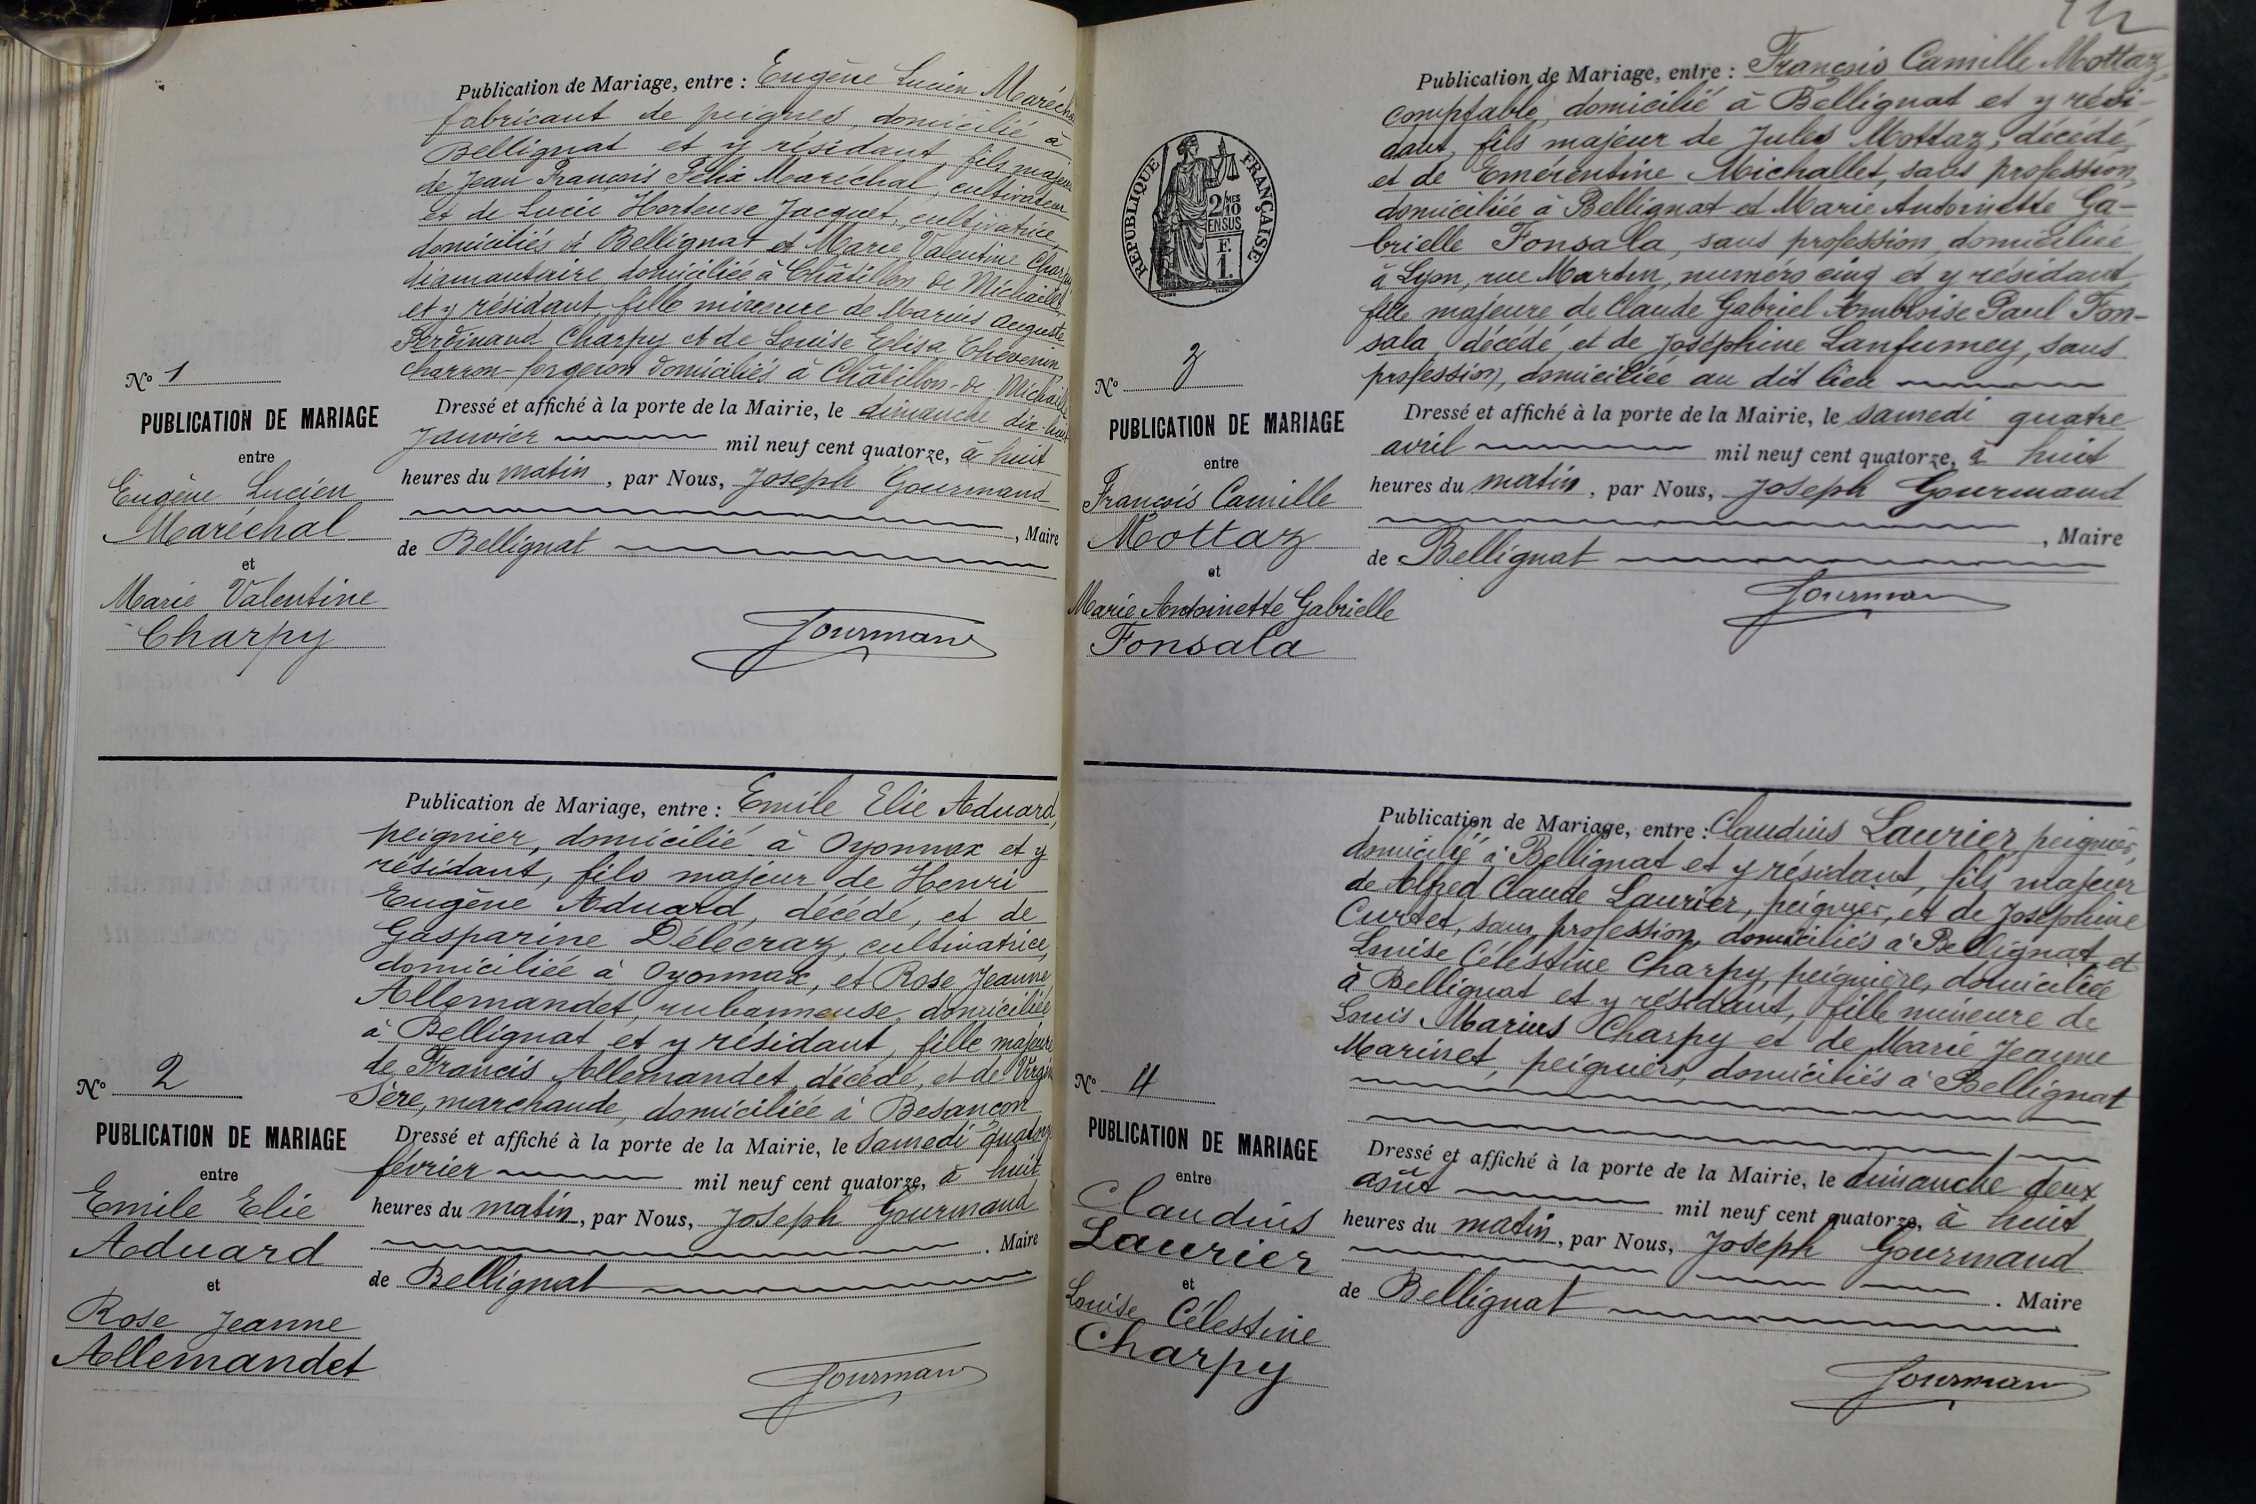 Publication de Mariage, entre : Eugène Lucien Maréchal
fabricant de peignes, domicilié à
Bellignat et y résidant, fils majeur
de Jean François Félix Maréchal, cultivateur
et de Lucie Hortense Jacquet, cultivatrice,
domiciliés à Bellignat et Marie Valentine Charpy
diamantaire domiciliée à Châtillon de Michaille
et y résidant, fille mineure de Marius Auguste
Ferdinand Charpy et de Louise Elisa Chevenin
charron-forgeron domiciliés à Châtillon-de Michaille
Dressé et affiché à la porte de la Mairie, le dimanche dix-huit
janvier mil neuf cent quatorze, à huit
heures du matin, par Nous, Joseph Gourmand
, Maire
de Bellignat
Gourmand
N° 1
PUBLICATION DE MARIAGE
entre
Eugène Lucien
Maréchal
et
Marie Valentine
Charpy
Publication de Mariage, entre : Emile Elie Aduard,
peignier, domicilié à Oyonnax et y
résidant, fils majeur de Henri
Eugène Aduard, décédé, et de
Gasparine Délécraz, cultivatrice,
domiciliée à Oyonnax, et Rose Jeanne
Allemandet, rubanneuse, domiciliée
à Bellignat et y résidant, fille majeure
de Francis Allemandet, décédé, et de Virginie
Sère, marchande, domiciliée à Besançon
Dressé et affiché à la porte de la Mairie, le samedi quatorze
février mil neuf cent quatorze, à huit
heures du matin, par Nous, Joseph Gourmand
. Maire
de Bellignat
Gourmand
N° 2
PUBLICATION DE MARIAGE
entre
Emile Elie
Aduard
et
Rose Jeanne
Allemandet
REPUBLIQUE FRANÇAISE
2 MES
10
EN SUS
F.
1.
Publication de Mariage, entre : François Camille Mottaz,
comptable, domicilié à Bellignat et y rési-
dant, fils majeur de Jules Mottaz, décédé,
et de Emérentine Michallet, sans profession,
domiciliée à Bellignat et Marie Antoinette Ga-
brielle Fonsala, sans profession, domiciliée
à Lyon, rue Martin, numéro cinq et y résidant,
fille majeure de Claude Gabriel Ambroise Paul Fon-
sala, décédé, et de Joséphine Lanfumey, sans
profession, domiciliée au dit lieu
Dressé et affiché à la porte de la Mairie, le samedi quatre
avril mil neuf cent quatorze, à huit
heures du matin, par Nous, Joseph Gourmand
, Maire
de Bellignat
Gourmand
N° 3
PUBLICATION DE MARIAGE
entre
François Camille
Mottaz
et
Marie Antoinette Gabrielle
Fonsala
Publication de Mariage, entre : Claudius Laurier, peignier,
domicilié à Bellignat et y résidant, fils majeur
de Alfred Claude Laurier, peignier, et de Joséphine
Curtet, sans profession, domiciliés à Bellignat, et
Louise Célestine Charpy, peignière, domiciliée
à Bellignat et y résidant, fille mineure de
Louis Marius Charpy et de Marie Jeanne
Marinet, peigniers, domiciliés à Bellignat
Dressé et affiché à la porte de la Mairie, le dimanche deux
août mil neuf cent quatorze, à huit
heures du matin, par Nous, Joseph Gourmand
. Maire
de Bellignat
Gourmand
N° 4
PUBLICATION DE MARIAGE
entre
Claudius
Laurier
et
Louise Célestine
Charpy